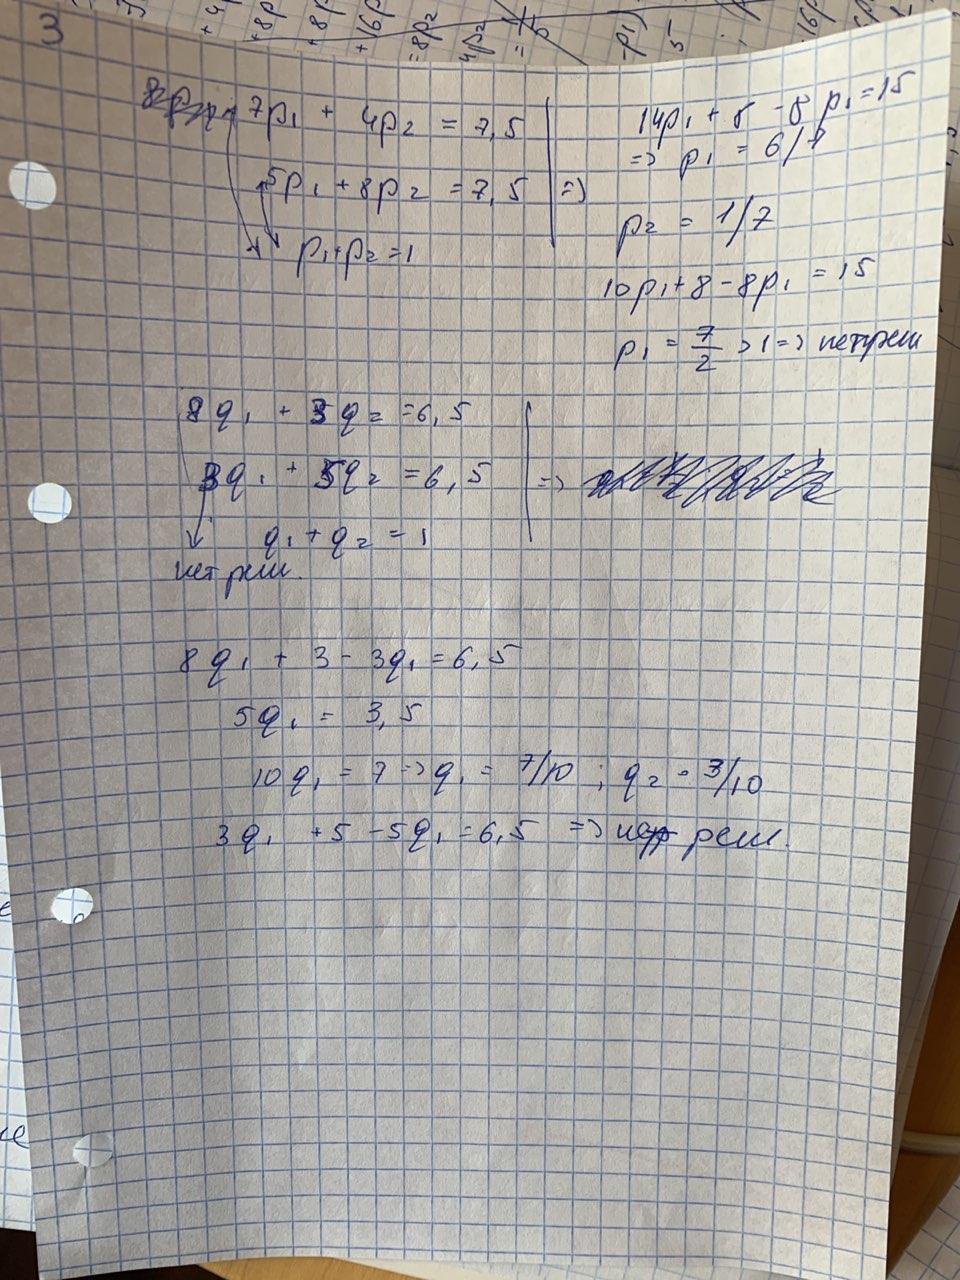 3
7p₁ + 4p₂ = 7,5
5p₁ + 8p₂ = 7,5 =>
p₁+p₂=1
14p₁ + 8 - 8p₁ = 15
=> p₁ = 6/7
p₂ = 1/7
10p₁ + 8 - 8p₁ = 15
p₁ = 7/2 > 1 => нет реш
8q₁ + 3q₂ = 6,5
3q₁ + 5q₂ = 6,5 =>
q₁ + q₂ = 1
нет реш.
8q₁ + 3 - 3q₁ = 6,5
5q₁ = 3,5
10q₁ = 7 => q₁ = 7/10 ; q₂ = 3/10
3q₁ + 5 - 5q₁ = 6,5 => нет реш.